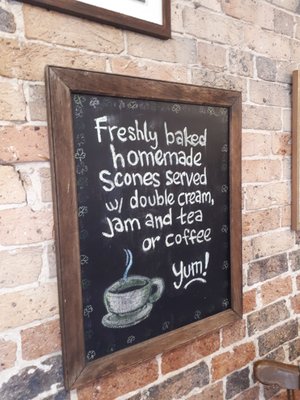 Freshly baked
homemade
Scones served
w/ double cream,
jam and tea
or coffee
Yum!